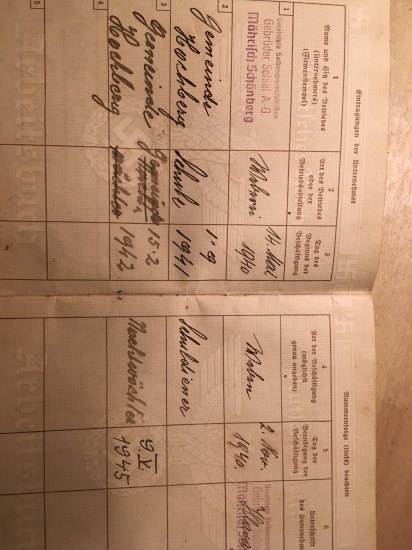 Eintragungen der Unternehmer
1
Name und Sitz des Betriebes
(Unternehmers)
(Firmenstempel)
2
Art des Betriebes
oder der
Betriebsabteilung
3
Tag des
Beginns der
Beschäftigung
1
Vereinigte Seidenwarenfabriken
Gebrüder Schiel A. G.
Mährisch Schönberg
Weberei
14. Mai
1940
2
Gemeinde
Hochberg
Schule
1. 9
1941
3
Gemeinde
Hochberg
15. 2
1942
4
5
Nummernfolge (links) beachten
4
Art der Beschäftigung
(möglichst
genau angeben)
5
Tag der
Beendigung der
Beschäftigung
6
Unterschrift
des Unternehmers
Weber
2. Nov.
1940.
Schuldiener
Nachtwächter
9 V.
1945